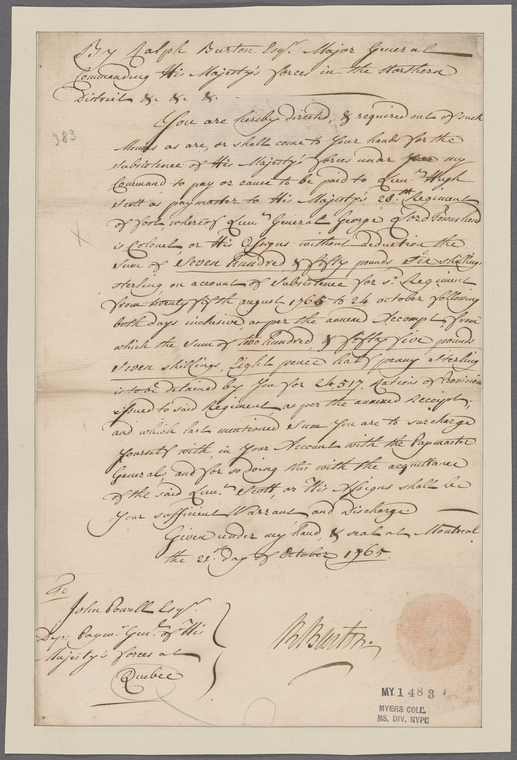 By Ralph Burton Esqr. Major General
Commanding His Majesty's forces in the Northern
District &. &. &.
383
You are hereby directed, & required out of such
Monies as are, or shall come to Your hands for the
subsistence of His Majesty's forces under my
Command to pay or cause to be paid to Lieut. Hugh
Scott as paymaster to His Majesty's 28th Regiment
of foot, whereof Lieut. General George Lord Townshend
is Colonel or His Assigns without deduction the
Sum of Seven hundred & fifty pounds Six shillings
sterling on account of Subsistence for sd. Regiment
from twenty fifth august 1765 to 24 october following
both days inclusive as per the annexed Accompt, from
which the Sum of two hundred, & fifty five pounds
Seven shillings, Eight pence half penny Sterling
is to be detained by You for 24,517 Rations of Provisions
issued to said Regiment as per the annexed Receipt,
and which last mentioned Sum You are to surcharge
yourself with in Your Account with the Paymaster
General, and for so doing this with the acquittance
of the said Lieut. Scott, or His Assigns shall be
Your sufficient Warrant and Discharge
Given under my hand, & seal at Montreal
the 25th day of October 1765.
To
John Powell Esqr.
Depy. Paymr. Genl. of His
Majesty's forces at
Quebec
R Burton
MY 1483
MYERS COLL.
MS. DIV. NYPL